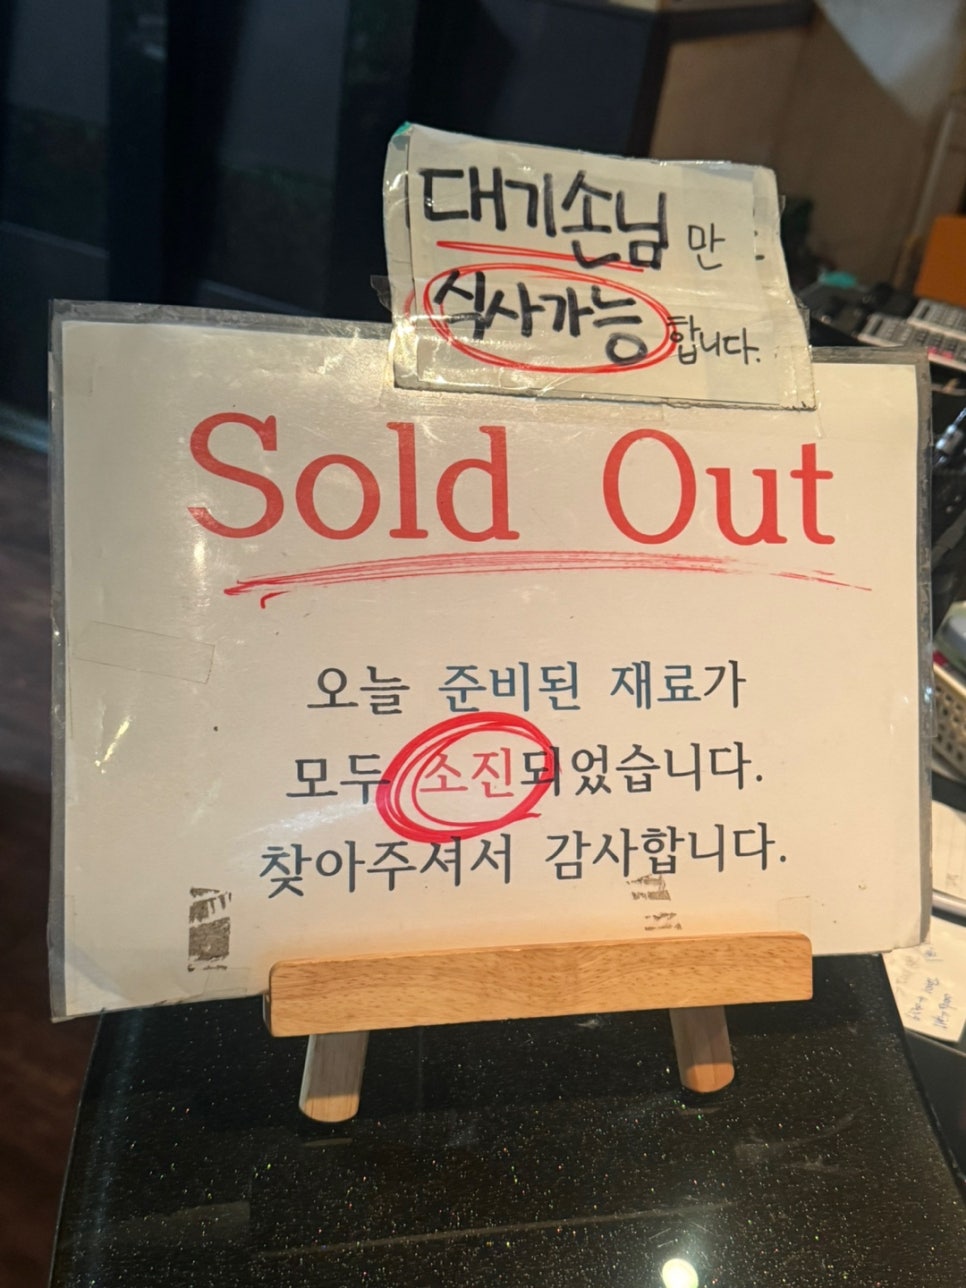 대기손님 만
식사가능 합니다.
Sold Out
오늘 준비된 재료가
모두 소진되었습니다.
찾아주셔서 감사합니다.